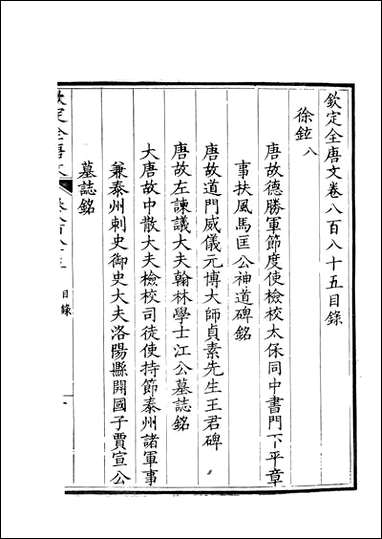 欽定全唐文卷八百八十五目錄
徐鉉八
唐故德勝軍節度使檢校太保同中書門下平章
事扶風馬匡公神道碑銘
唐故道門威儀元博大師貞素先生王君碑
唐故左諫議大夫翰林學士江公墓誌銘
大唐故中散大夫檢校司徒使持節泰州諸軍事
兼泰州刺史御史大夫洛陽縣開國子賈宣公
墓誌銘
欽定全唐文
目錄